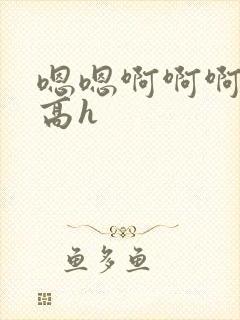 嗯嗯啊啊啊
高h
鱼多鱼